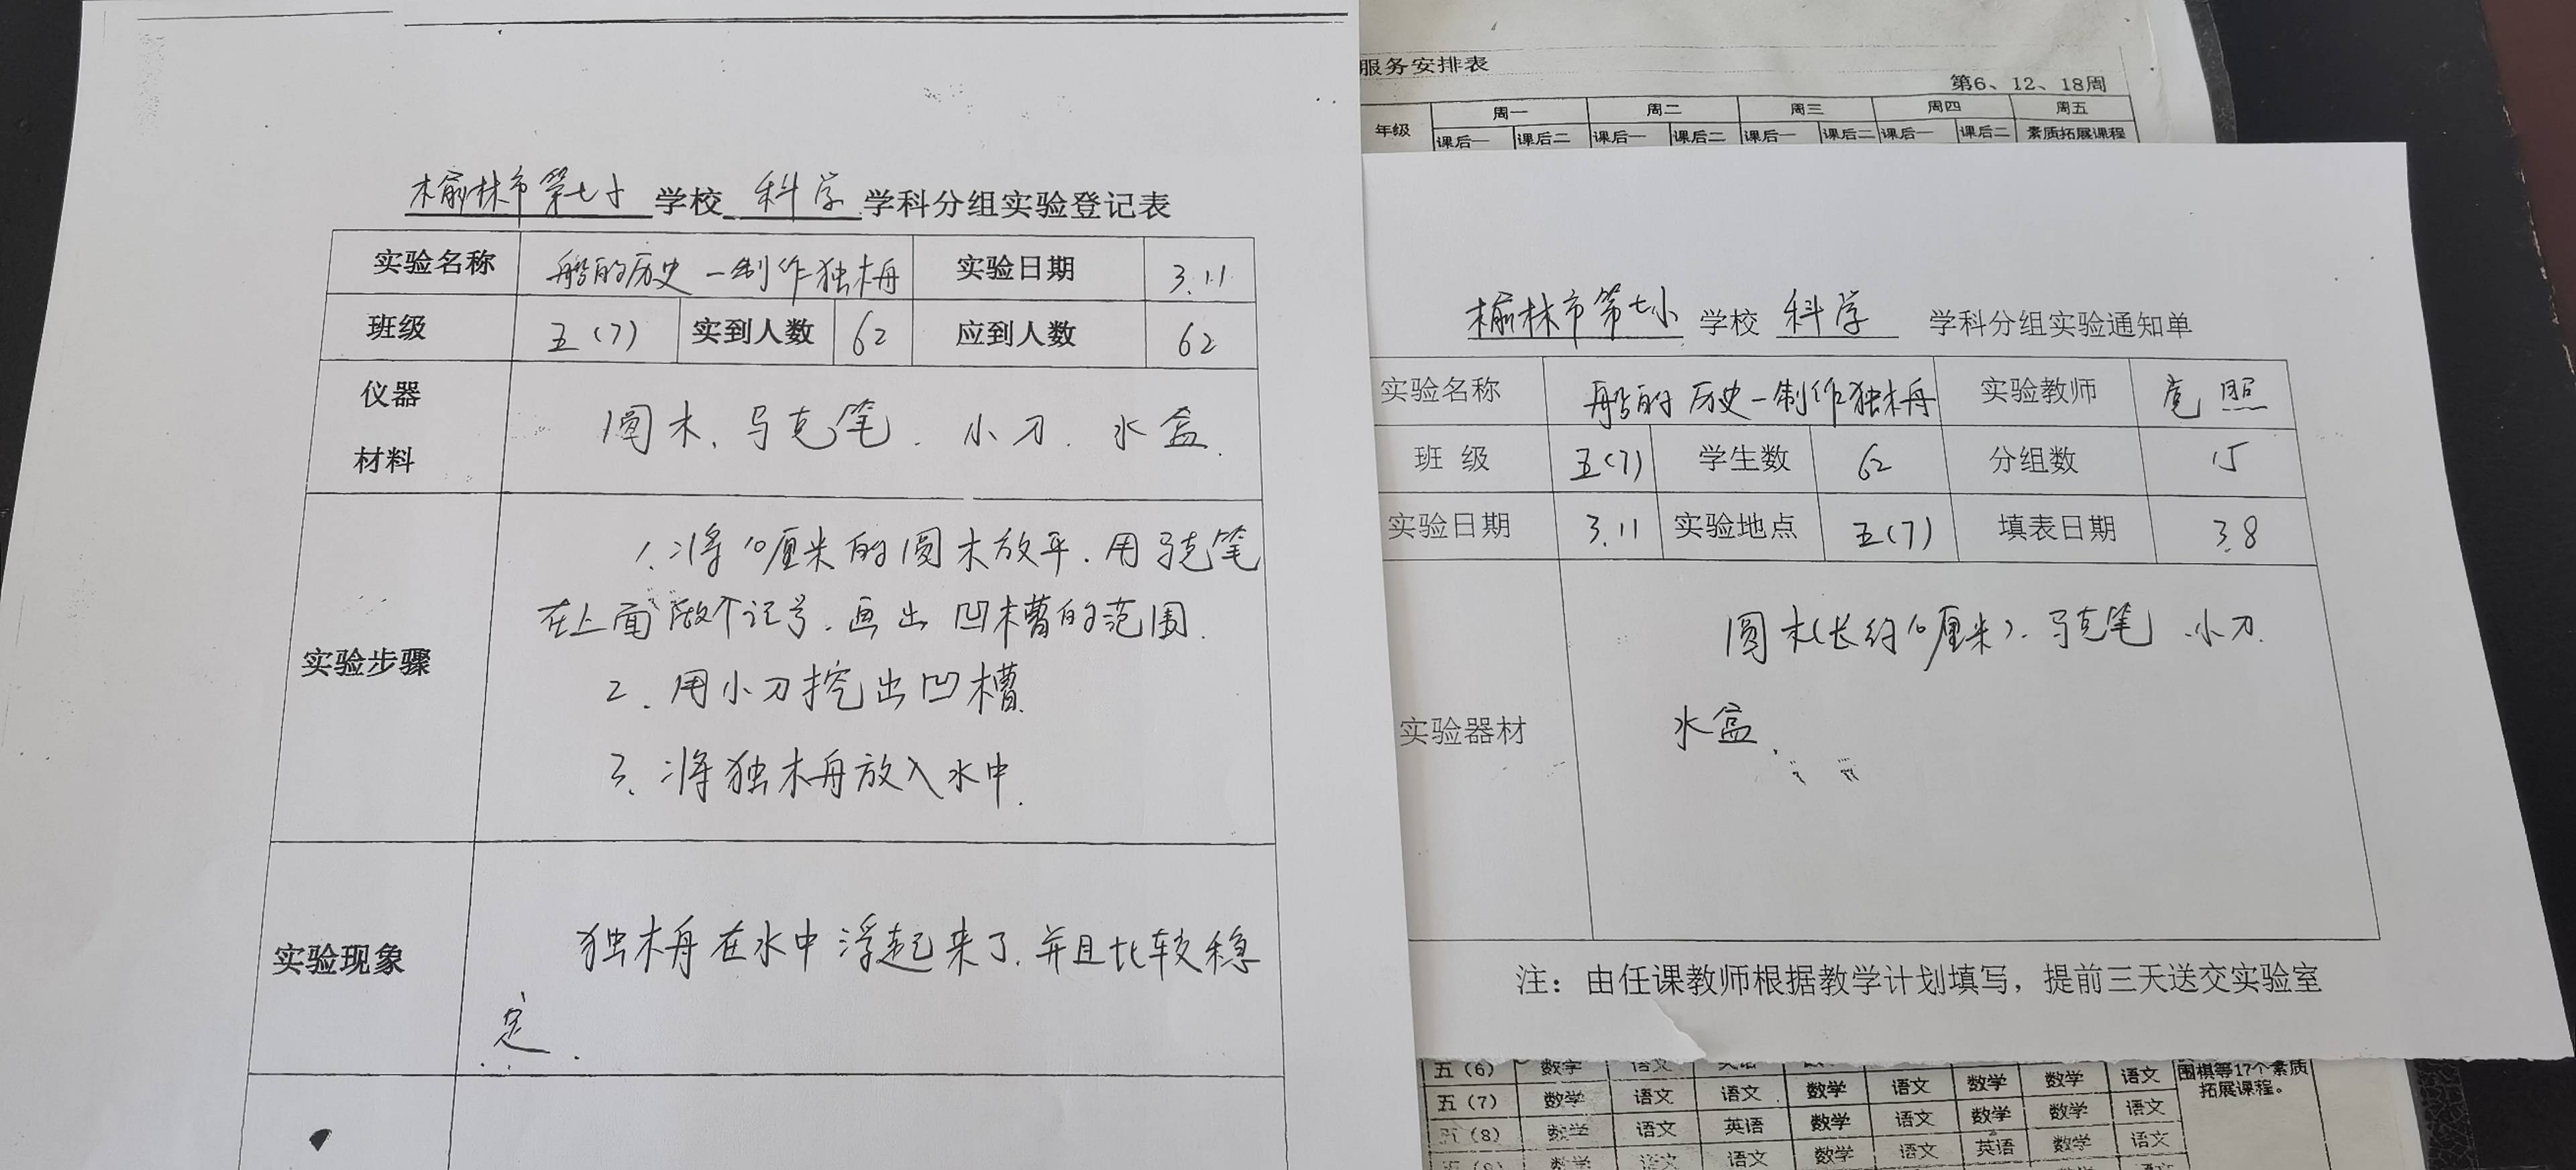 榆林市第七小 学校 科学 学科分组实验登记表
实验名称 船的历史—制作独木舟 实验日期 3.11
班级 五(7) 实到人数 62 应到人数 62
仪器
材料
圆木、马克笔、小刀、水盆.
实验步骤
1.将10厘米的圆木放平.用马克笔
在上面做个记号.画出凹槽的范围.
2.用小刀挖出凹槽
3.将独木舟放入水中.
实验现象
独木舟在水中浮起来了.并且比较稳
定.
服务安排表
第6、12、18周
年级 周一 周二 周三 周四 周五
课后一 课后二 课后一 课后二 课后一 课后二 课后一 课后二 素质拓展课程
榆林市第七小 学校 科学 学科分组实验通知单
实验名称 船的历史—制作独木舟 实验教师 照
班 级 五(7) 学生数 62 分组数 15
实验日期 3.11 实验地点 五(7) 填表日期 3.8
实验器材
圆木(长约10厘米).马克笔.小刀.
水盆.
注：由任课教师根据教学计划填写，提前三天送交实验室
五（6） 数学 语文 英语 数学 语文
五（7） 数学 语文 语文 数学 语文 数学 数学 语文
五（8） 数学 语文 英语 数学 语文 数学 数学 语文
数学 语文 语文 数学 语文 英语 数学 语文
围棋等17个素质
拓展课程。